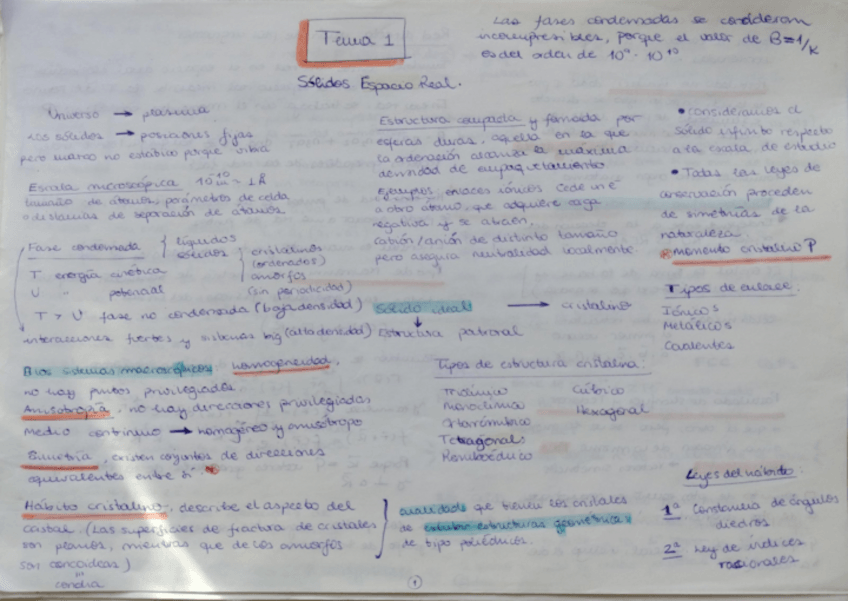 Tema 1
Las fases condensadas se consideran
incompresibles, porque el valor de B=1/K
es del orden de 10⁹ - 10¹⁰
Sólidos Espacio Real.
Universo → plasma
Los sólidos → posiciones fijas
pero marco no estático porque vibra
Escala microscópica 10⁻¹⁰ m ~ 1 Å
tamaño de átomos, parámetros de celda
o distancias de separación de átomos.
Fase condensada { líquidos
sólidos { cristalinos
(ordenados)
amorfos
(sin periodicidad)
T energía cinética
U " potencial
T > U fase no condensada (baja densidad)
interacciones fuertes y sistemas big (alta densidad)
Estructura compacta y formada por
esferas duras, aquella en la que
la ordenación alcanza la máxima
densidad de empaquetamiento
Ejemplos enlaces iónicos Cede un e⁻
a otro átomo, que adquiere carga
negativa y se atraen.
Catión/anión de distinto tamaño
pero asegura neutralidad localmente.
Sólido ideal → cristalino
↓
Estructura patronal
• consideramos el
sólido infinito respecto
a la escala de estudio
• Todas las leyes de
conservación proceden
de simetrías de la
naturaleza.
momento cristalino P
Tipos de enlace.
Iónicos
Metálicos
Covalentes
sistemas macroscópicos homogeneidad,
no hay puntos privilegiados
Anisotropía, no hay direcciones privilegiadas
Medio continuo → homogéneo y anisótropo
Simetría, existen conjuntos de direcciones
equivalentes entre sí.
Tipos de estructura cristalina:
Triclínico Cúbico
Monoclínico Hexagonal
Ortorrómbico
Tetragonal
Romboédrico
Hábito cristalino, describe el aspecto del
cristal. (Las superficies de fractura de cristales
son planos, mientras que de los amorfos
son concoideas)
concha
cualidad que tienen los cristales
de estructuras geométricas
de tipo poliédricos.
Leyes del hábito:
1ª Constancia de ángulos
diedros
2ª Ley de índices
racionales
1